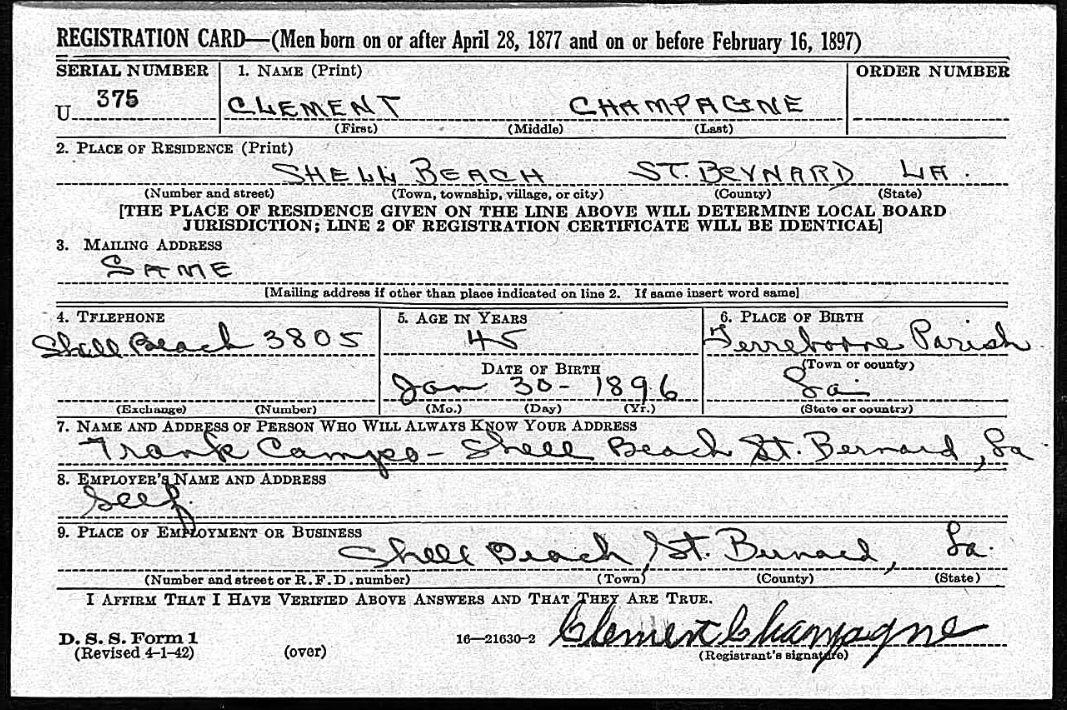 REGISTRATION CARD—(Men born on or after April 28, 1877 and on or before February 16, 1897)
SERIAL NUMBER 1. NAME (Print) ORDER NUMBER
U 375 CLEMENT CHAMPAGNE
(First) (Middle) (Last)
2. PLACE OF RESIDENCE (Print)
SHELL BEACH ST. BEYNARD LA.
(Number and street) (Town, township, village, or city) (County) (State)
[THE PLACE OF RESIDENCE GIVEN ON THE LINE ABOVE WILL DETERMINE LOCAL BOARD
JURISDICTION; LINE 2 OF REGISTRATION CERTIFICATE WILL BE IDENTICAL]
3. MAILING ADDRESS
SAME
[Mailing address if other than place indicated on line 2. If same insert word same]
4. TELEPHONE 5. AGE IN YEARS 6. PLACE OF BIRTH
Shell Beach 3805 45 Terrebonne Parish
DATE OF BIRTH (Town or county)
Jan 30- 1896 La
(Exchange) (Number) (Mo.) (Day) (Yr.) (State or country)
7. NAME AND ADDRESS OF PERSON WHO WILL ALWAYS KNOW YOUR ADDRESS
Frank Campo - Shell Beach St. Bernard, La
8. EMPLOYER'S NAME AND ADDRESS
Self.
9. PLACE OF EMPLOYMENT OR BUSINESS
Shell Beach, St. Bernard, La.
(Number and street or R.F.D. number) (Town) (County) (State)
I AFFIRM THAT I HAVE VERIFIED ABOVE ANSWERS AND THAT THEY ARE TRUE.
Clement Champagne
D. S. S. Form 1 16—21630-2
(Revised 4-1-42) (over) (Registrant's signature)